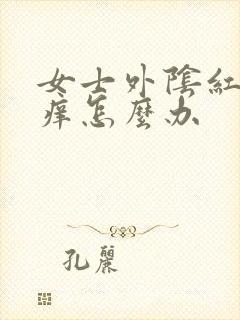 女士外陰紅
痒怎麼办
孔麗